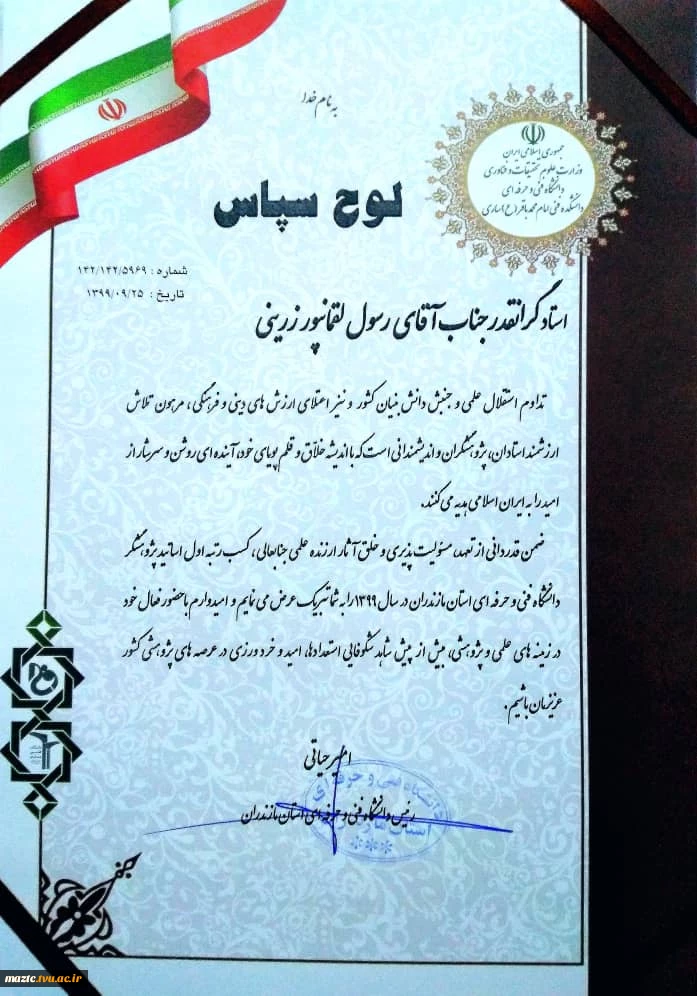 به نام خدا
جمهوری اسلامی ایران
وزارت علوم تحقیقات و فناوری
دانشگاه فنی و حرفه ای
دانشکده فنی امام محمد باقر (ع) ساری
لوح سپاس
شماره : ۱۴۲/۱۴۲/۵۹۶۹
تاریخ : ۱۳۹۹/۰۹/۲۵
استاد گرانقدر جناب آقای رسول لقمانپور زرینی
تداوم استقلال علمی و جنبش دانش بنیان کشور و نیز اعتلای ارزش های دینی و فرهنگی، مرهون تلاش
ارزشمند استادان، پژوهشگران و اندیشمندانی است که با اندیشه خلاّق و قلم پویای خود، آینده ای روشن و سرشار از
امید را به ایران اسلامی هدیه می کنند.
ضمن قدردانی از تعهد، مسئولیت پذیری و خلق آثار ارزنده علمی جنابعالی، کسب رتبه اول اساتید پژوهشگر
دانشگاه فنی و حرفه ای استان مازندران در سال ۱۳۹۹ را به شما تبریک عرض می نمایم و امیدوارم با حضور فعال خود
در زمینه های علمی و پژوهشی، بیش از پیش شاهد شکوفایی استعدادها، امید و خردورزی در عرصه های پژوهشی کشور
عزیزمان باشیم.
امیر حیاتی
رئیس دانشگاه فنی و حرفه ای استان مازندران
دانشگاه فنی و حرفه ای
maztc.tvu.ac.ir